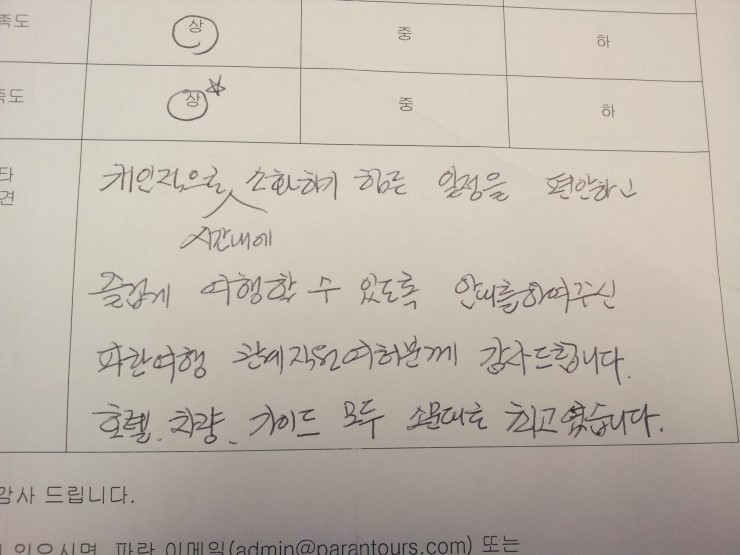 족도 상 중 하
족도 상 중 하
타
견
개인적으로 소화하기 힘든 일정을 편안하고
시간내에
즐겁게 여행할 수 있도록 안내를하여주신
파란여행 관계직원여러분께 감사드립니다.
호텔. 차량. 가이드 모두 소문대로 최고였습니다.
감사 드립니다.
있으시면, 파란 이메일(admin@parantours.com) 또는